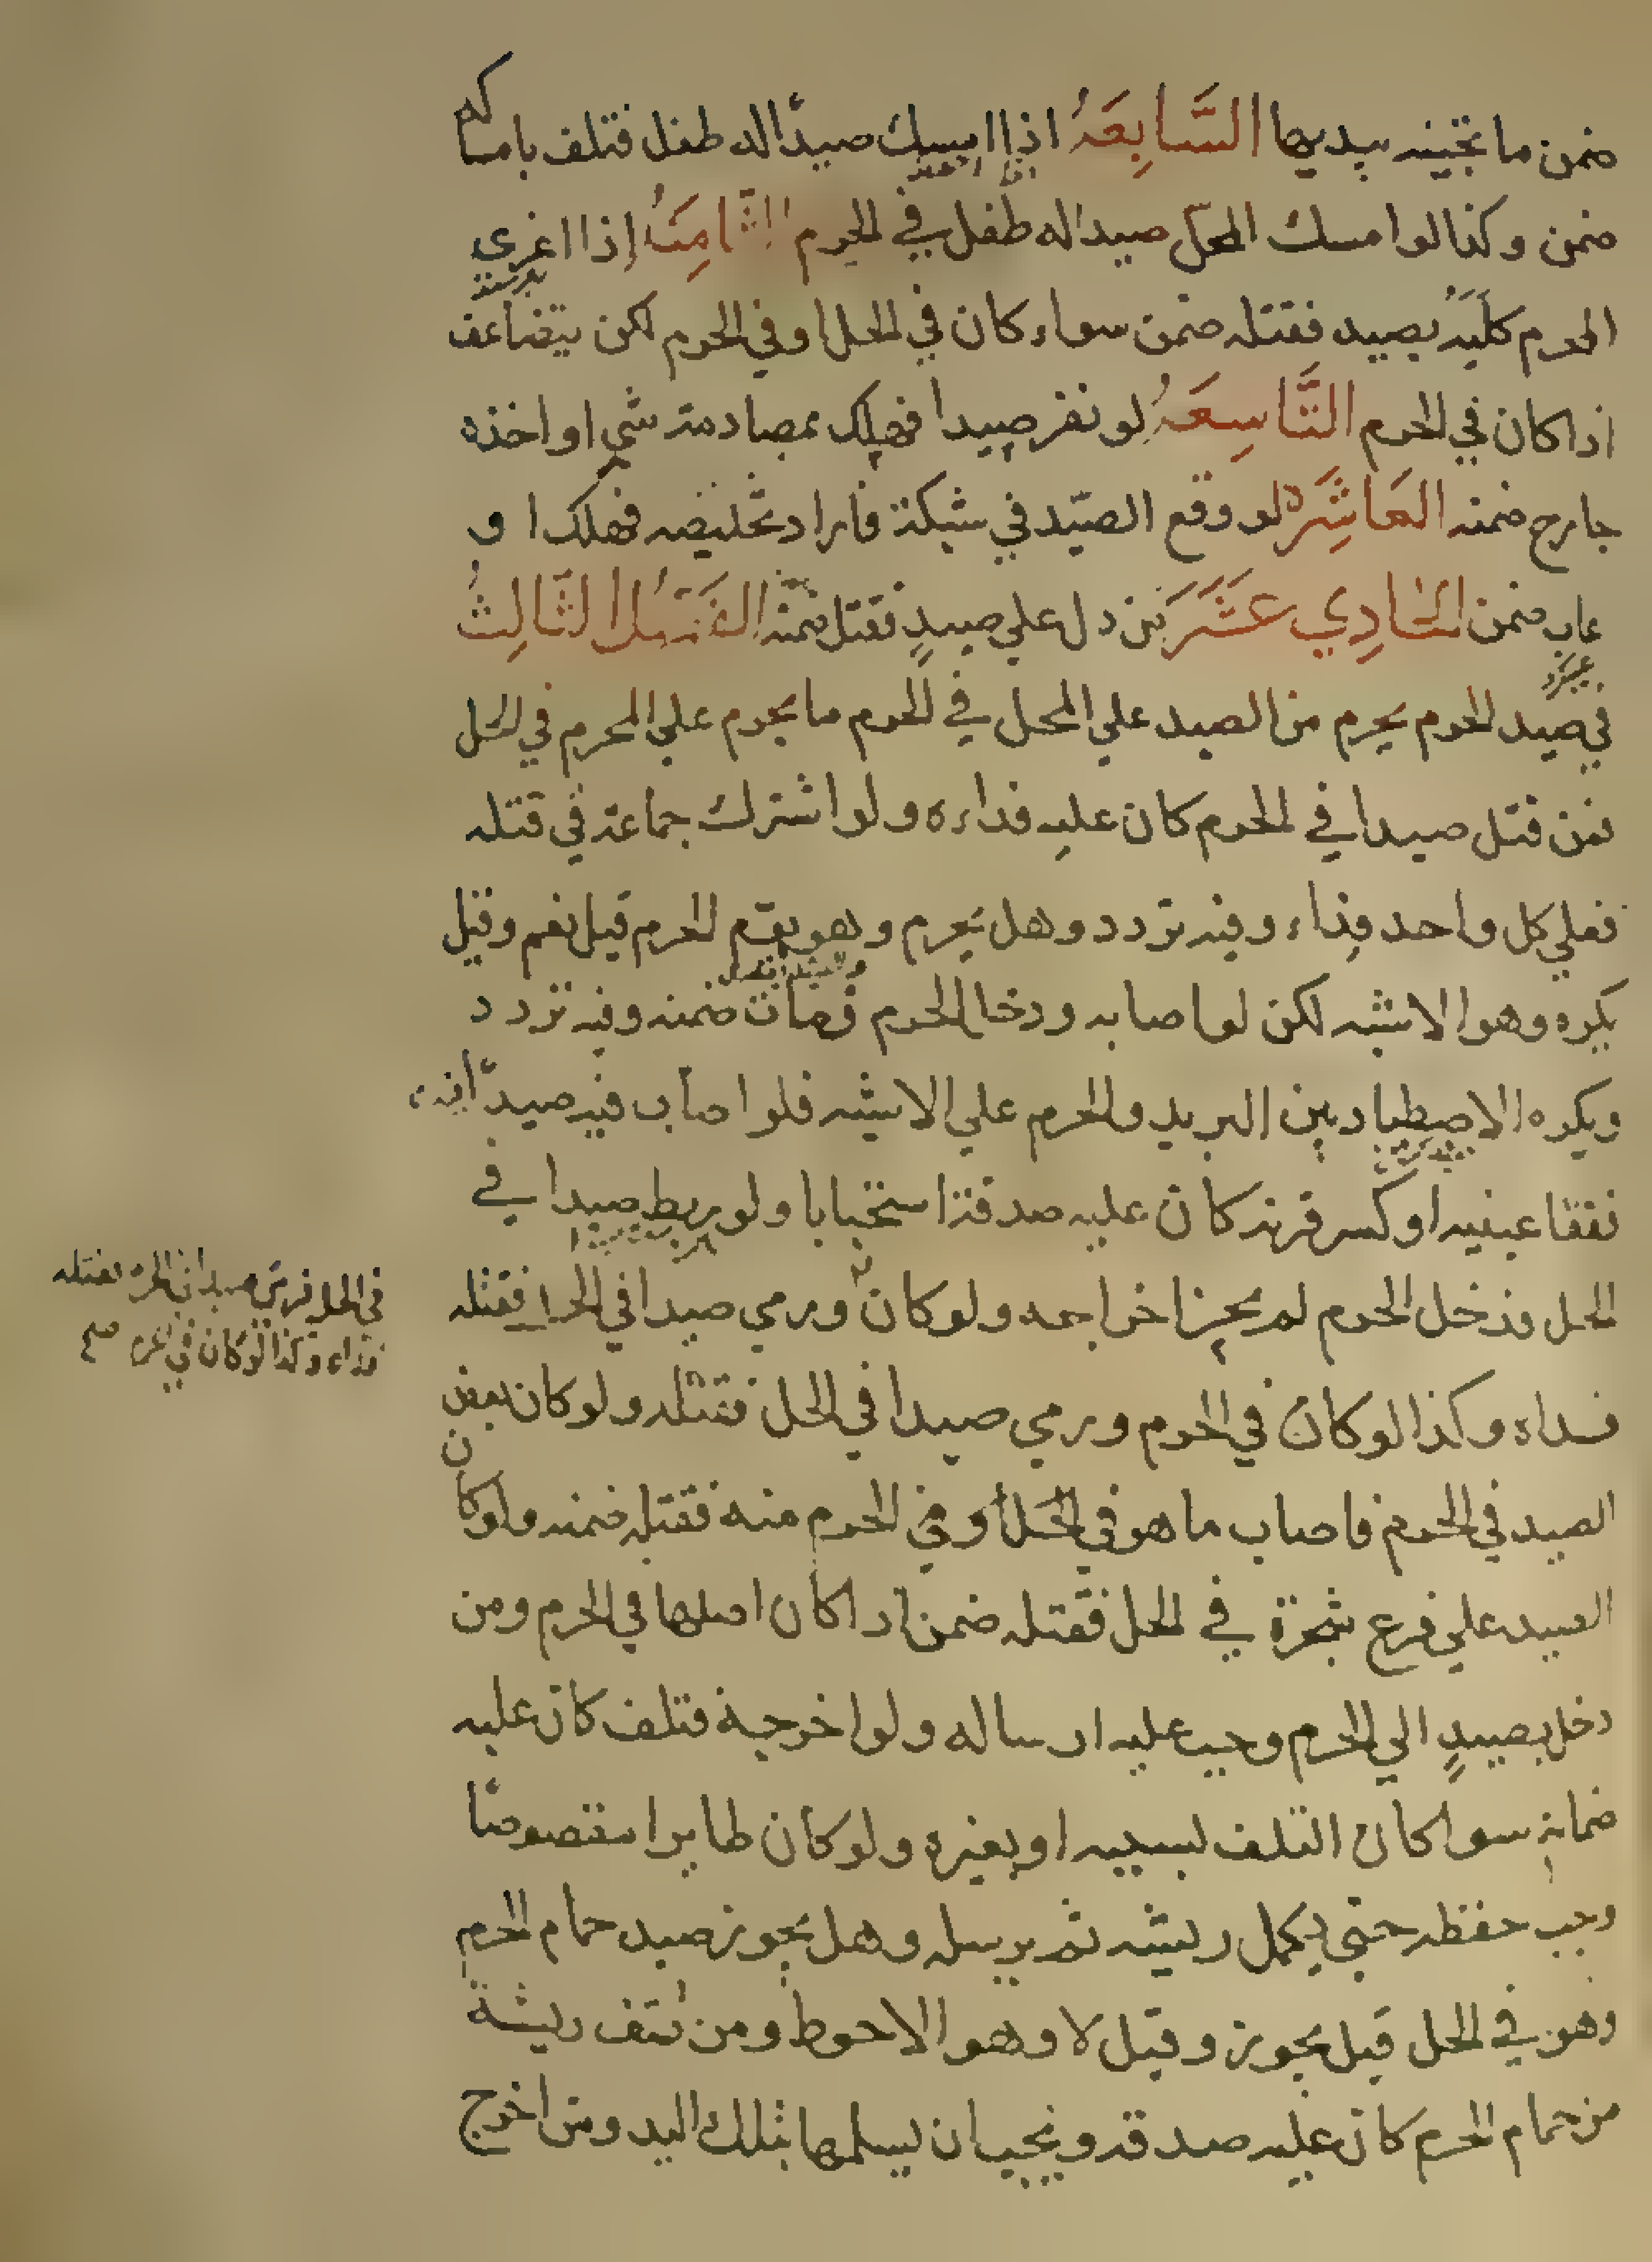 ضمن ما تجنيه بيديها السَّابِعَةُ اذا امسك صيدًا له طفل فتلف بامساكه
ضمن وكذا لو امسك المحلّ صيدا له طفل في الحرم الثَّامِنَةُ إذا اغري
المحرم كلبَه بصيد فقتله ضمن سواء كان في الحل او في الحرم لكن يتضاعف
اذا كان في الحرم التَّاسِعَةُ لو نفر صيدا فهلك بمصادمة شي او اخذه
جارح ضمنه العَاشِرَة لو وقع الصيّد في شبكة فاراد تخليصه فهلك او
عاب ضمن الحَادِي عَشَرَ من دل علي صيدٍ فقتل ضمنه الفَصْلُ الثَّالِثُ
في صيد الحرم يحرم من الصيد علي المحل في الحرم ما يحرم علي المحرم في الحل
فمن قتل صيدا في الحرم كان عليه فداءه ولو اشترك جماعة في قتله
فعلي كل واحد فداء وفيه تردد وهل يحرم وهو يؤم الحرم قيل نعم وقيل
يكره وهو الاشبه لكن لو اصابه ودخل الحرم فمات ضمنه وفيه تردد
ويكره الاصطياد بين البريد والحرم علي الاشبه فلو اصاب فيه صيدًا
ففقا عينيه او كسر قرنه كان عليه صدقة استحبابا ولو ربط صيدا في
الحل فدخل الحرم لم يجز اخراجه ولو كان ورمي صيدا في الحل فقتله
في الحل فرمي صيدا في الحرم فقتله
فداء وكذا لو كان في الحرم صح
فداه وكذا لو كان في الحرم ورمي صيدا في الحل فقتله ولو كان بعض
الصيد في الحرم فاصاب ما هو في الحل او في الحرم منه فقتله ضمنه ولو كان
الصيد علي فرع شجرة في الحل فقتله ضمن اذا كان اصلها في الحرم ومن
دخل بصيدٍ الي الحرم وجب عليه ارساله ولو اخرجه فتلف كان عليه
ضمانه سوا كان التلف بسببه او بغيره ولو كان طايرا مقصوصًا
وجب حفظه حتي يكمل ريشه ثم يرسله وهل يجوز صيد حمام الحرم
وهو في الحل قيل يجوز وقيل لا وهو الاحوط ومن نتف ريشة
من حمام الحرم كان عليه صدقه ويجب ان يسلمها بتلك اليد ومن اخرج